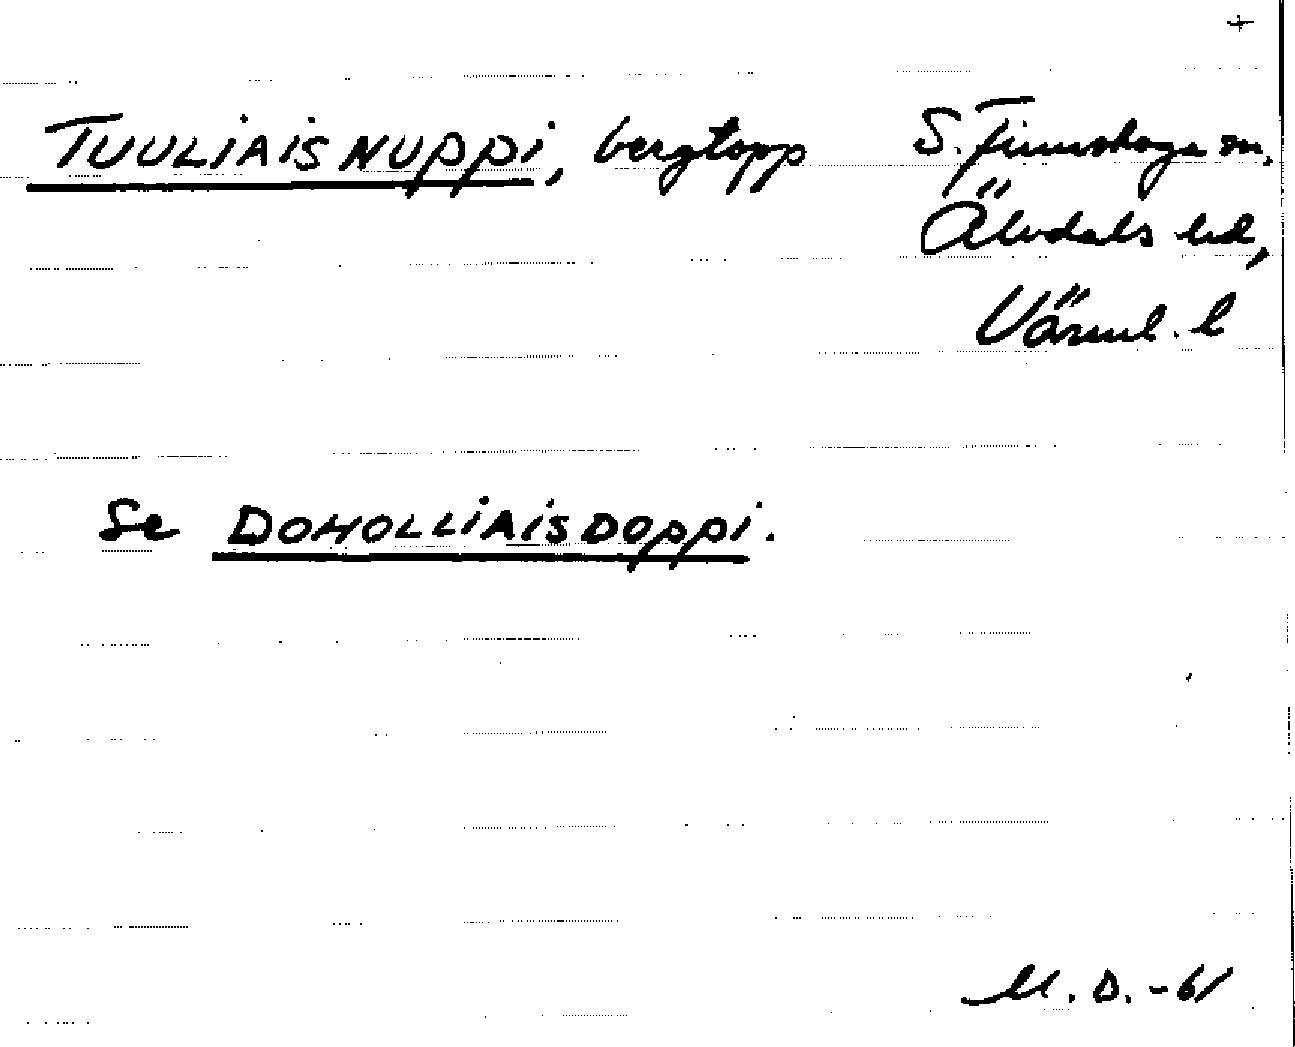 +
TUULIAISNUPPI, bergtopp S. Finnskoga sn,
Älvdals hd,
Värml. l
Se DOHOLLIAISDOPPI.
M. D. -61